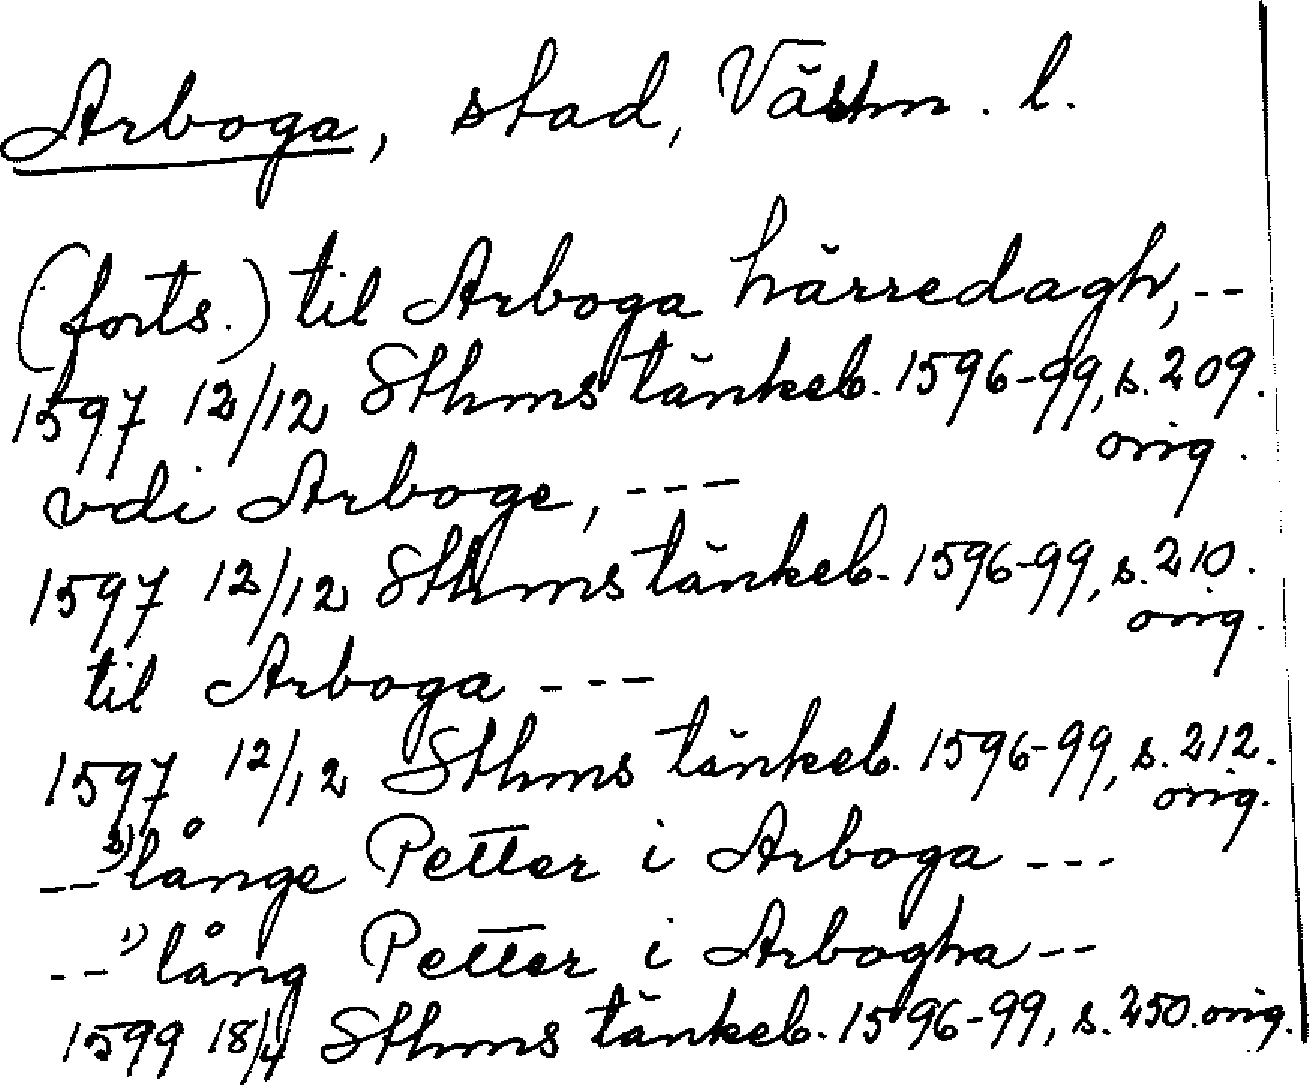 Arboga, stad, Västm. l.
(forts.) til Arboga härredagh, --
1597 12/12 Sthms tänkeb. 1596-99, s. 209.
orig.
vdi Arboge, ---
1597 12/12 Sthms tänkeb. 1596-99, s. 210.
orig.
til Arboga ---
1597 12/12 Sthms tänkeb. 1596-99, s. 212.
orig.
-- långe Petter i Arboga ---
-- 1) lång Petter i Arbogha --
1599 18/4 Sthms tänkeb. 1596-99, s. 250. orig.